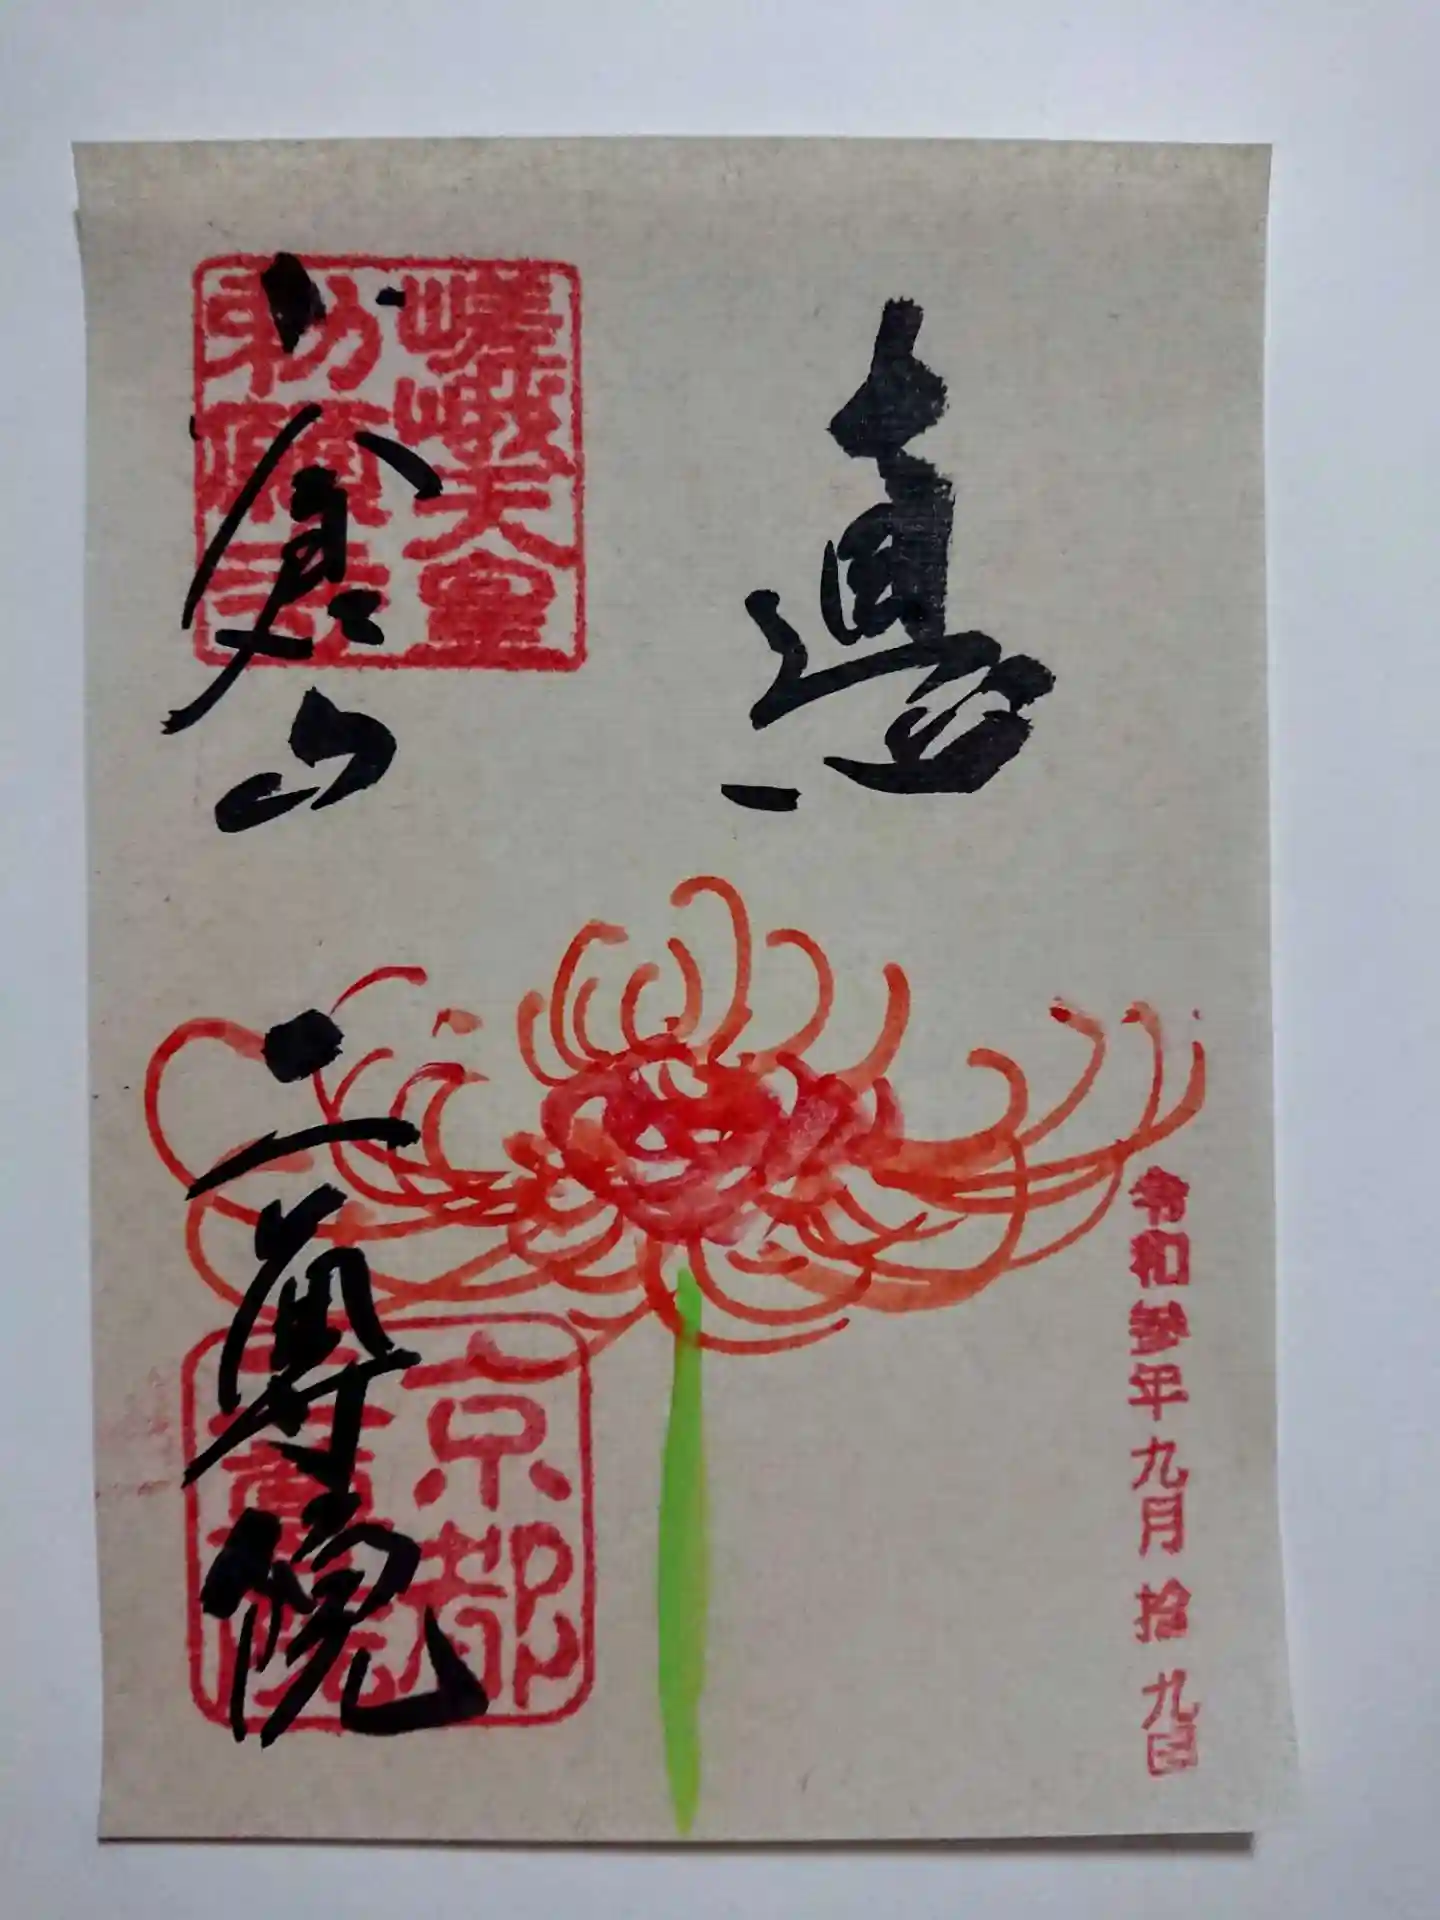 令和参年九月拾九日
嵯峨天皇
勅願寺
小倉山
二尊院
京都
二尊院